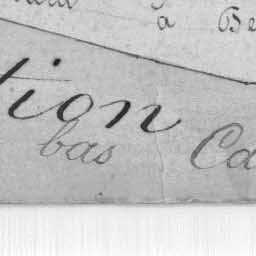 a Be
tion
bas Ca